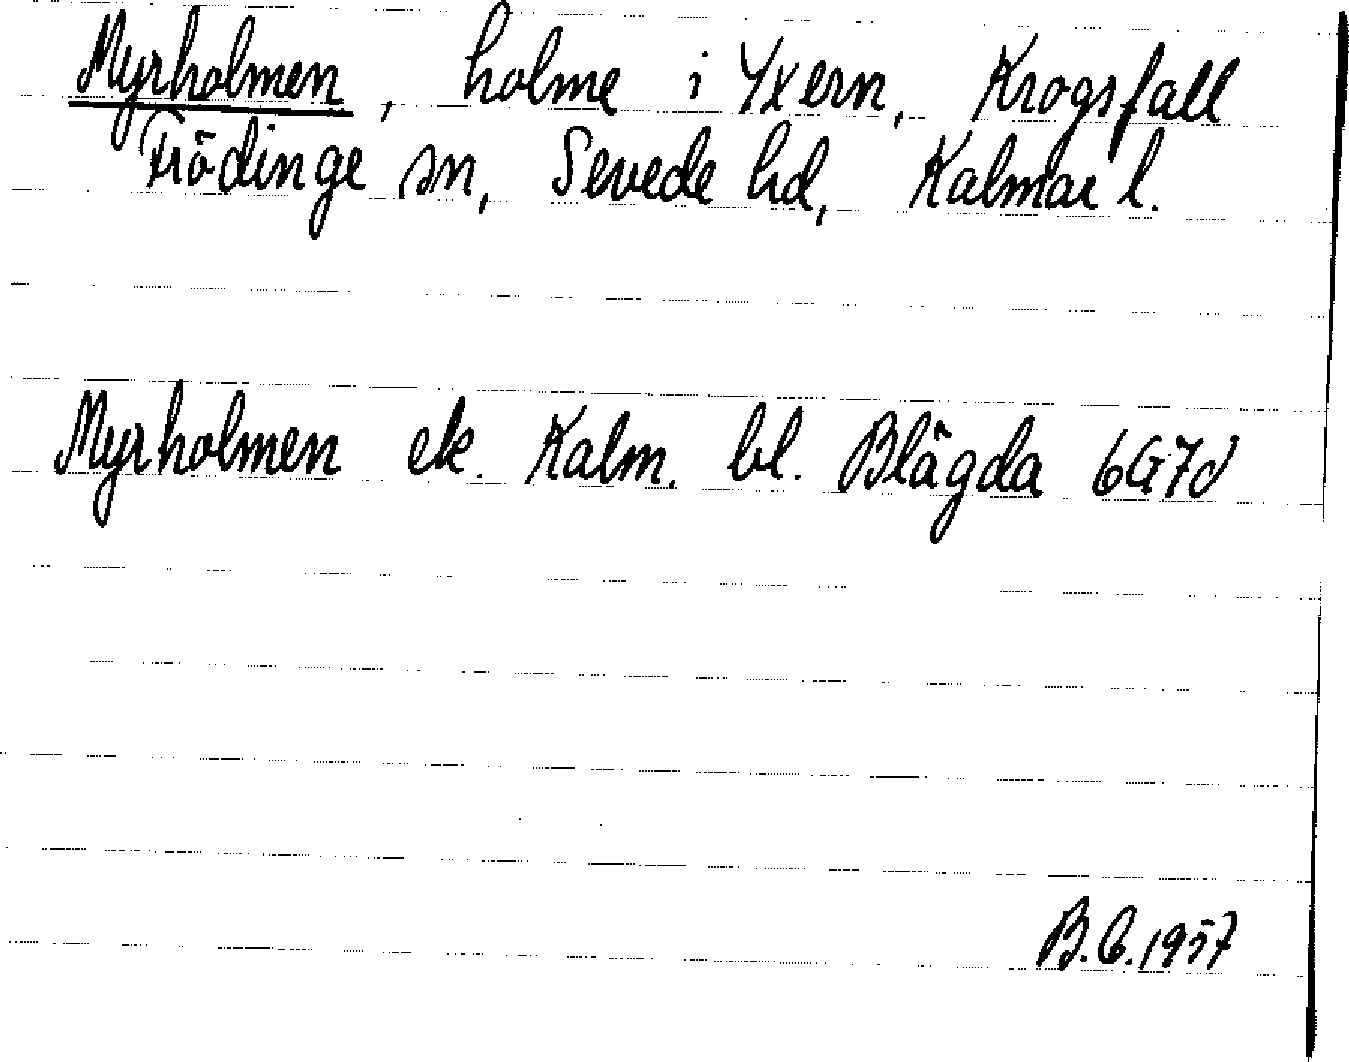 Myrholmen, holme i Yxern, Krogsfall
Frödinge sn, Sevede hd, Kalmar l.
Myrholmen ek. Kalm. bl. Blägda 6G7d
B.C. 1957